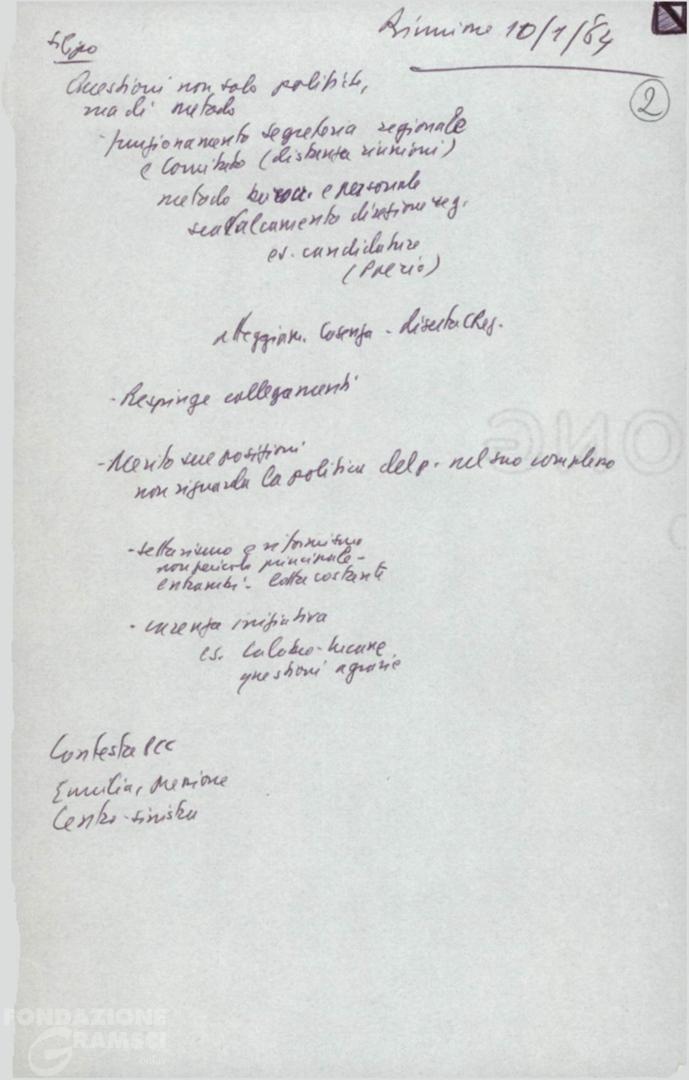 Riunione 10/1/64
2
Questioni non solo politiche,
ma di metodo
- funzionamento segreteria regionale
e Comitato (distanza riunioni)
metodo burocr. e personale
scavalcamento direzione reg.
es. candidature
atteggiam. Cosenza -
- Respinge collegamenti
- Merito sue posizioni
non riguarda la politica del p. nel suo complesso
- settarismo e riformismo
non pericolo principale -
entrambi - lotta costante
- carenza iniziativa
es. Calabro-lucane
questioni agrarie
Contesta
Emilia,
Centro-sinistra
FONDAZIONE
GRAMSCI